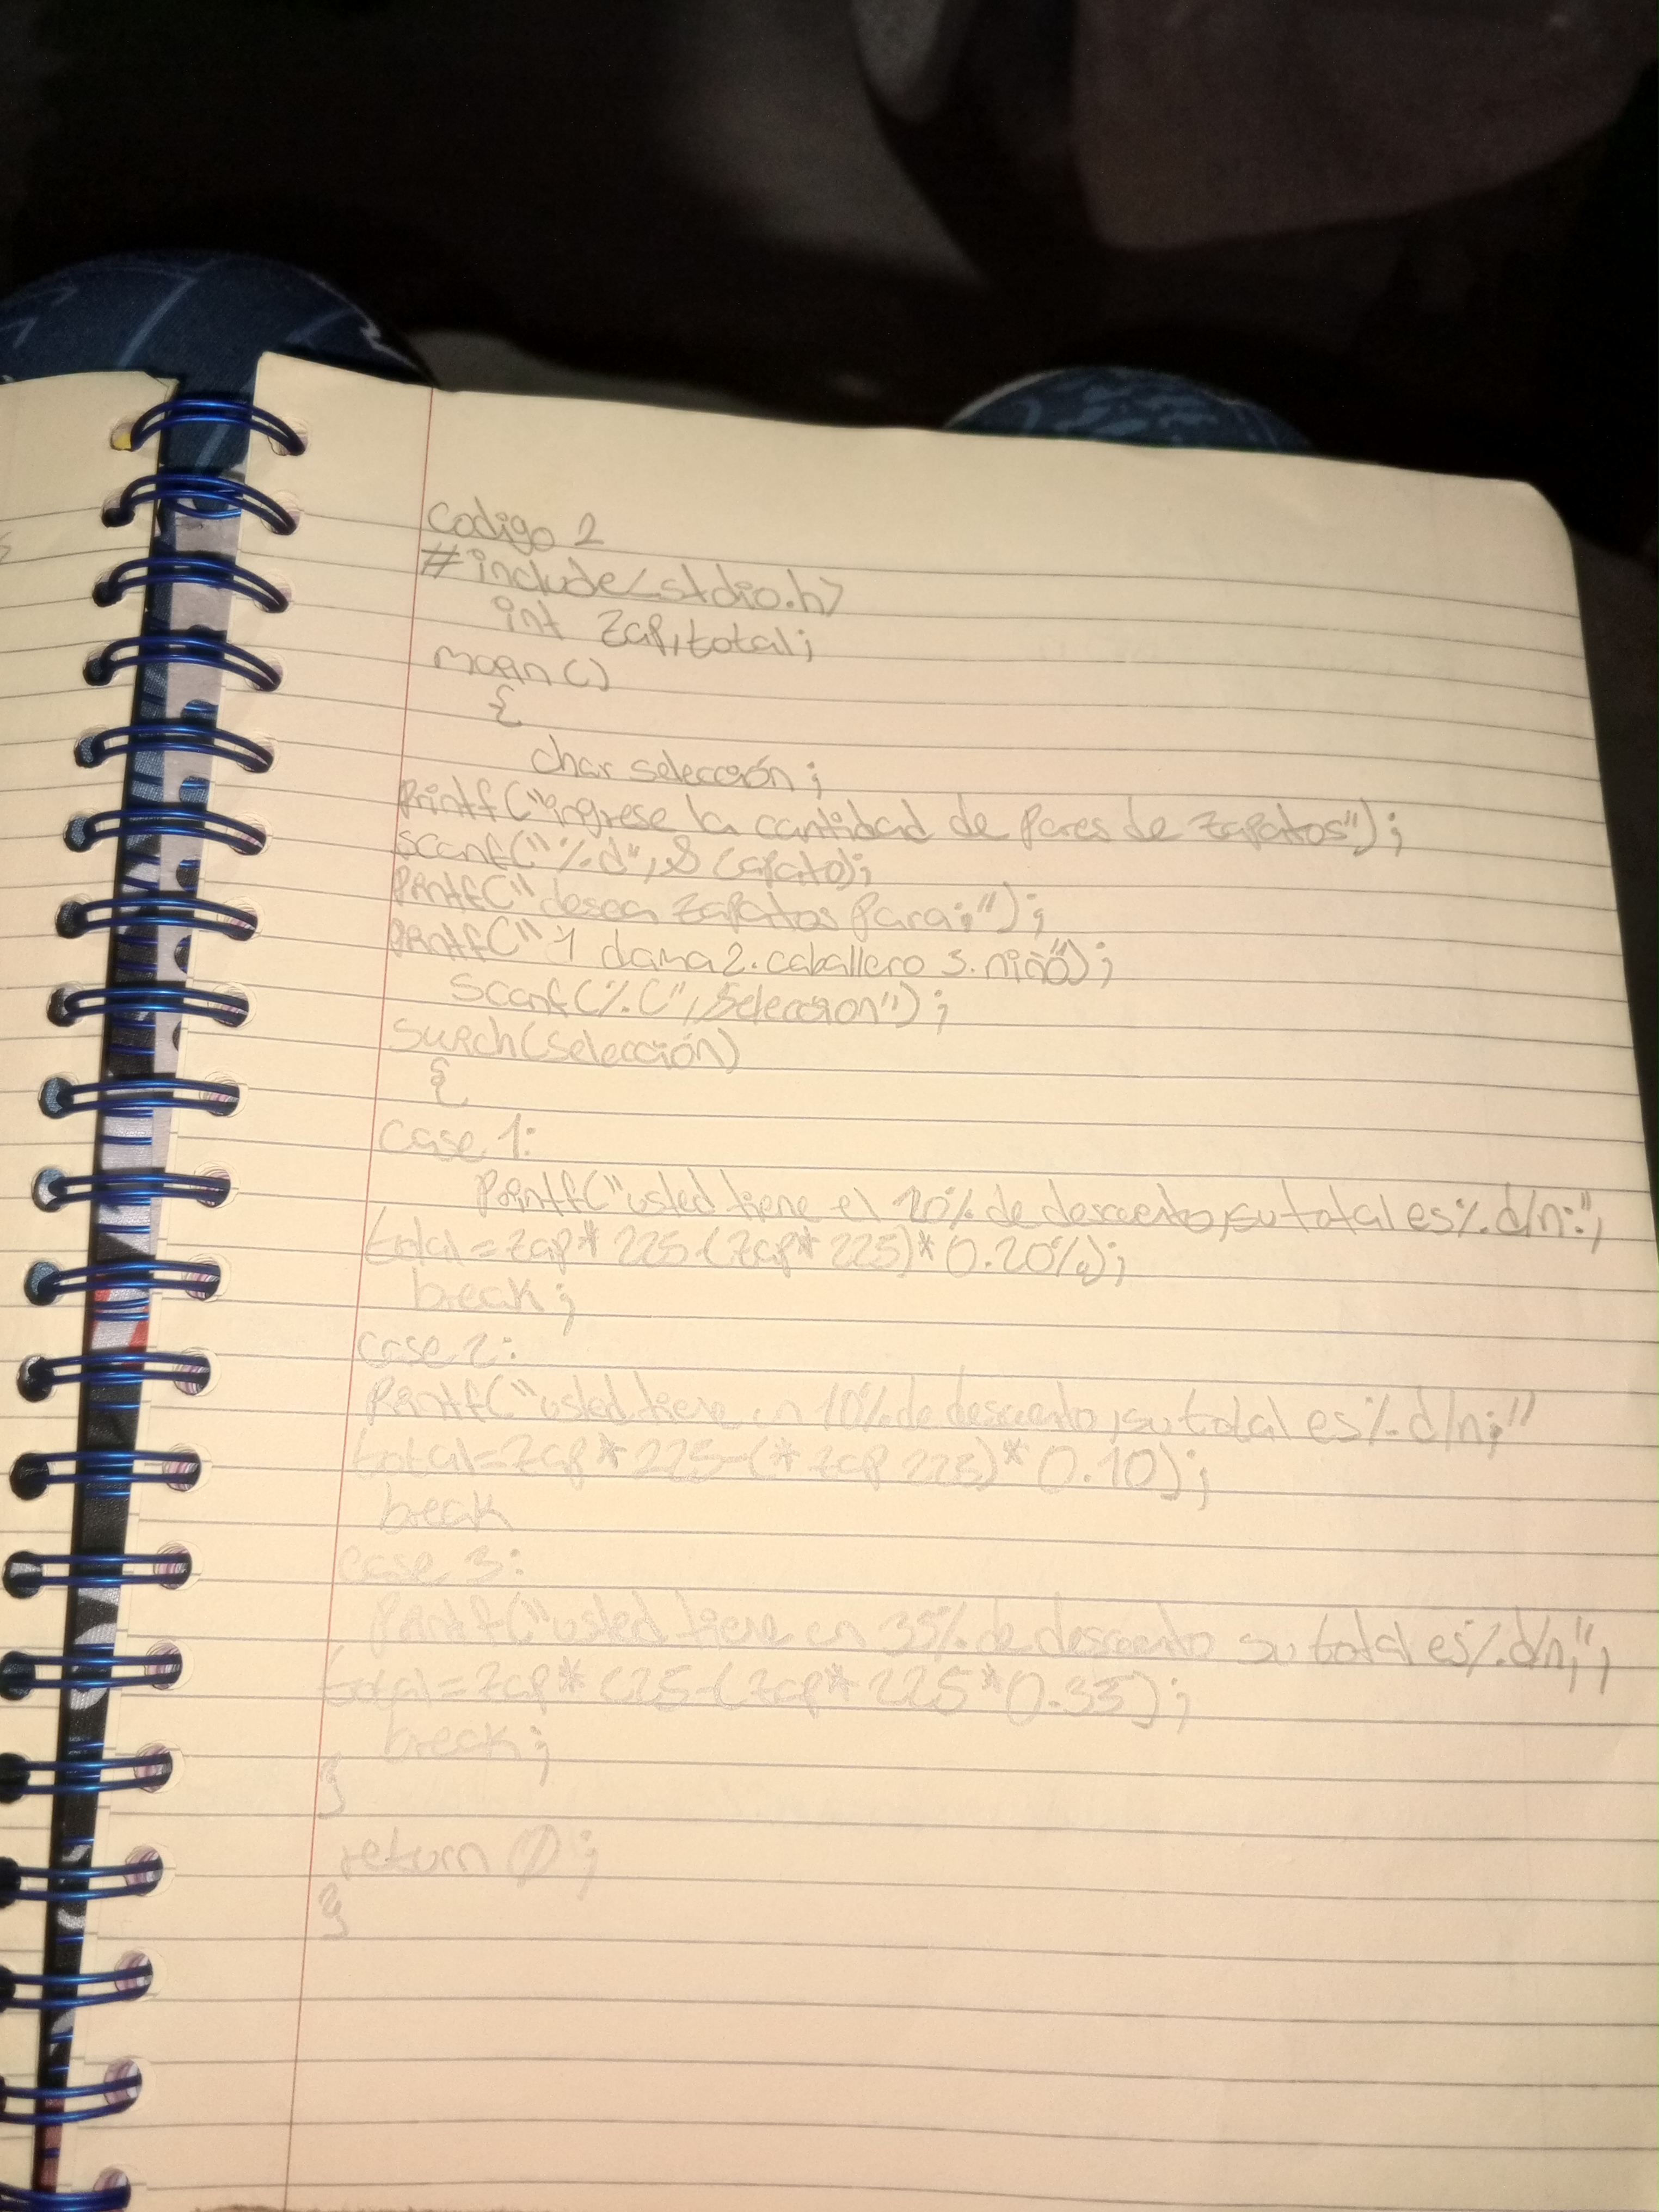 Codigo 2
#include<stdio.h>
int zap,total;
main()
{
char selección;
printf("ingrese la cantidad de pares de zapatos");
scanf("%d",&(apato);
printf("desea zapatos para;");
printf("1 dama2.caballero 3.niño");
scanf(%c",selección");
switch(selección)
{
case 1:
printf("usted tiene el 20% de descuento,su total es%.d/n:",
total=zap*225-(zap*225)*0.20%);
break;
case 2:
printf("usted tiene un 10% de descuento,su total es%.d/n;"
total=zap*225-(*zap 225)*0.10);
break
case 3:
printf("usted tiene un 35% de descuento su total es%.d/n;",
total=zap*225-(zap*225*0.35);
break;
}
return 0;
}